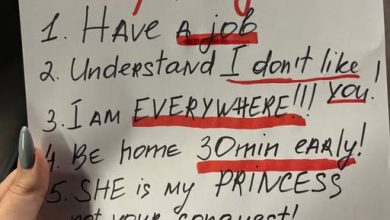 1. HAVE a job
2. Understand I don't like
YOU!
3. I AM EVERYWHERE!!!
4. BE home 30min early!
5. SHE is my PRINCESS
not your conquest!